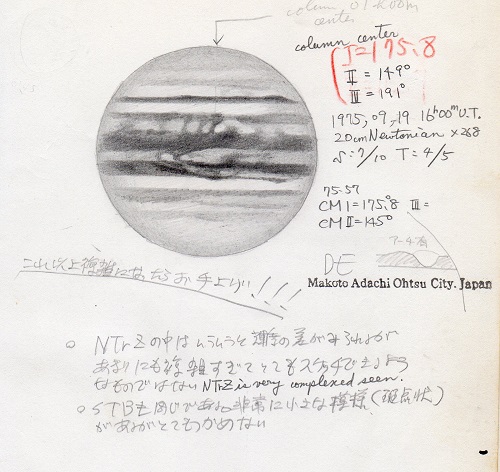 column center
center
column center
I = 175.8
II = 149°
III = 191°
1975, 09, 19 16h00m U.T.
20cm Newtonian ×268
S=7/10 T=4/5
75-57
CM I = 175.8 III =
CM II = 145°
これ以上複雑に お手上げ!!!
DE
Makoto Adachi Ohtsu City. Japan
○ NTrZの中は 濃度の差がみられるが
あまりにも複雑すぎてとてもスケッチできるよう
なものではない NTrZ is very complexed seen.
○ STBも同じである 非常に小さな模様(斑点状)
があるがとてもつかめない